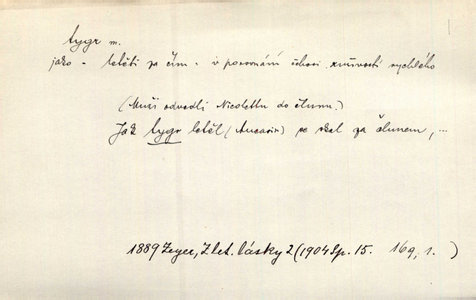 tygr m.
jako - letěti za čím - v porovnání rychlého
(Muži odvedli Nicolettu do člunu)
Jak tygr letěl (Aucasin) se skal za člunem, ...
1889 Zeyer, Z let. lásky 2 (1904 Sp. 15. 169, 1. )